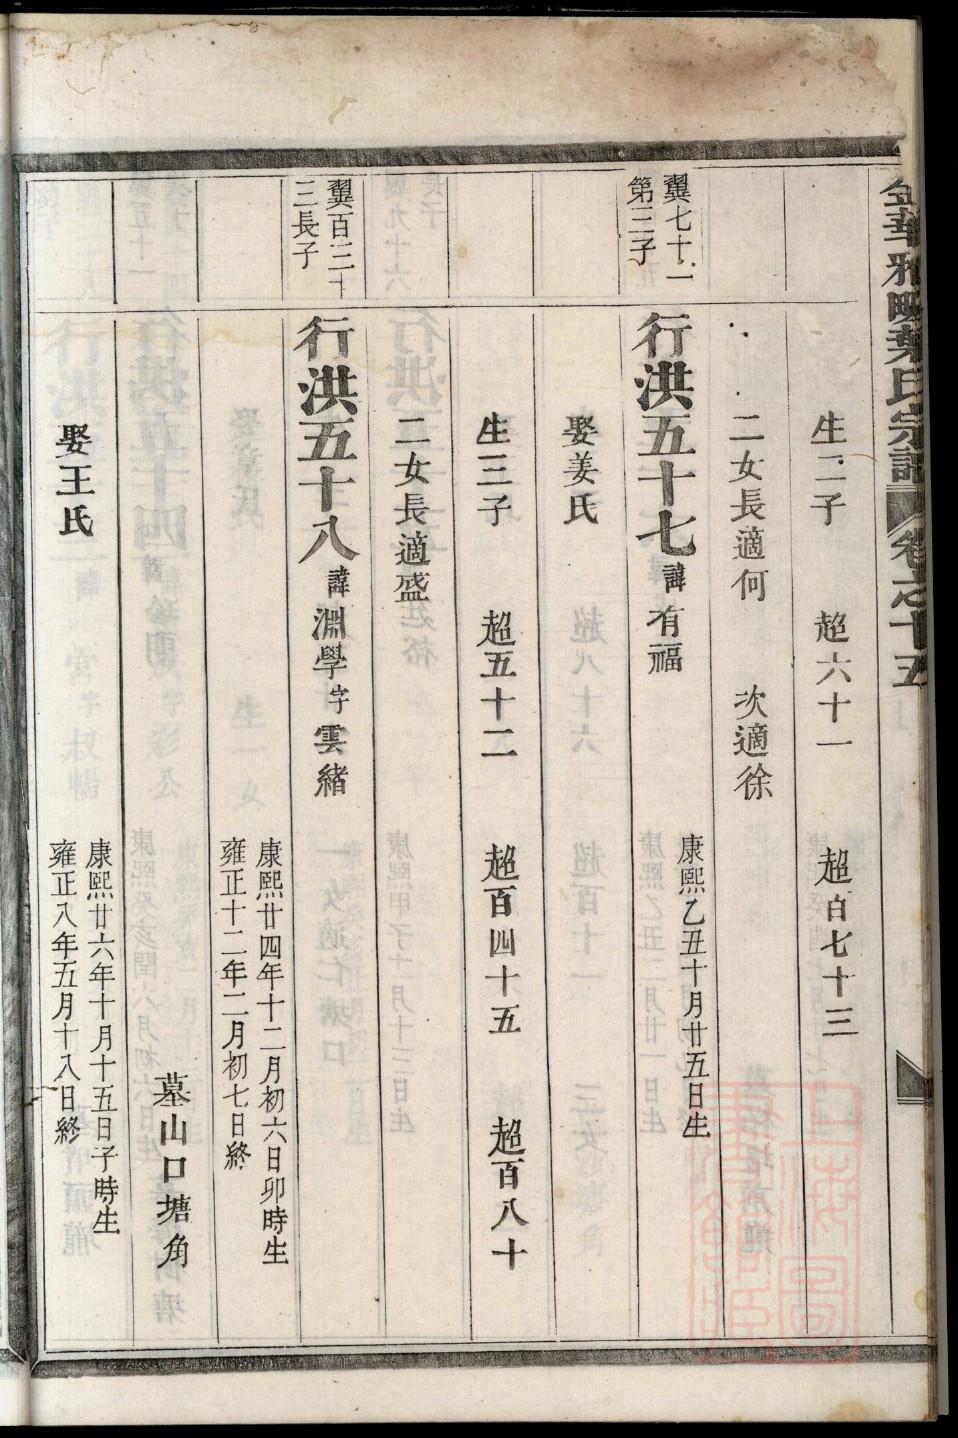 金華雅畈葉氏宗譜 卷之十五
生二子 超六十一 超百七十三
二女長適何 次適徐
翼七十一
第三子
行洪五十七 諱有福 康熙乙丑十月廿五日生
娶姜氏
生三子 超五十二 超百四十五 超百八十
二女長適盛
翼百三十
三長子
行洪五十八 諱淵學 字雲緒
康熙廿四年十二月初六日卯時生
雍正十二年二月初七日終
墓山口塘角
娶王氏
康熙廿六年十月十五日子時生
雍正八年五月十八日終